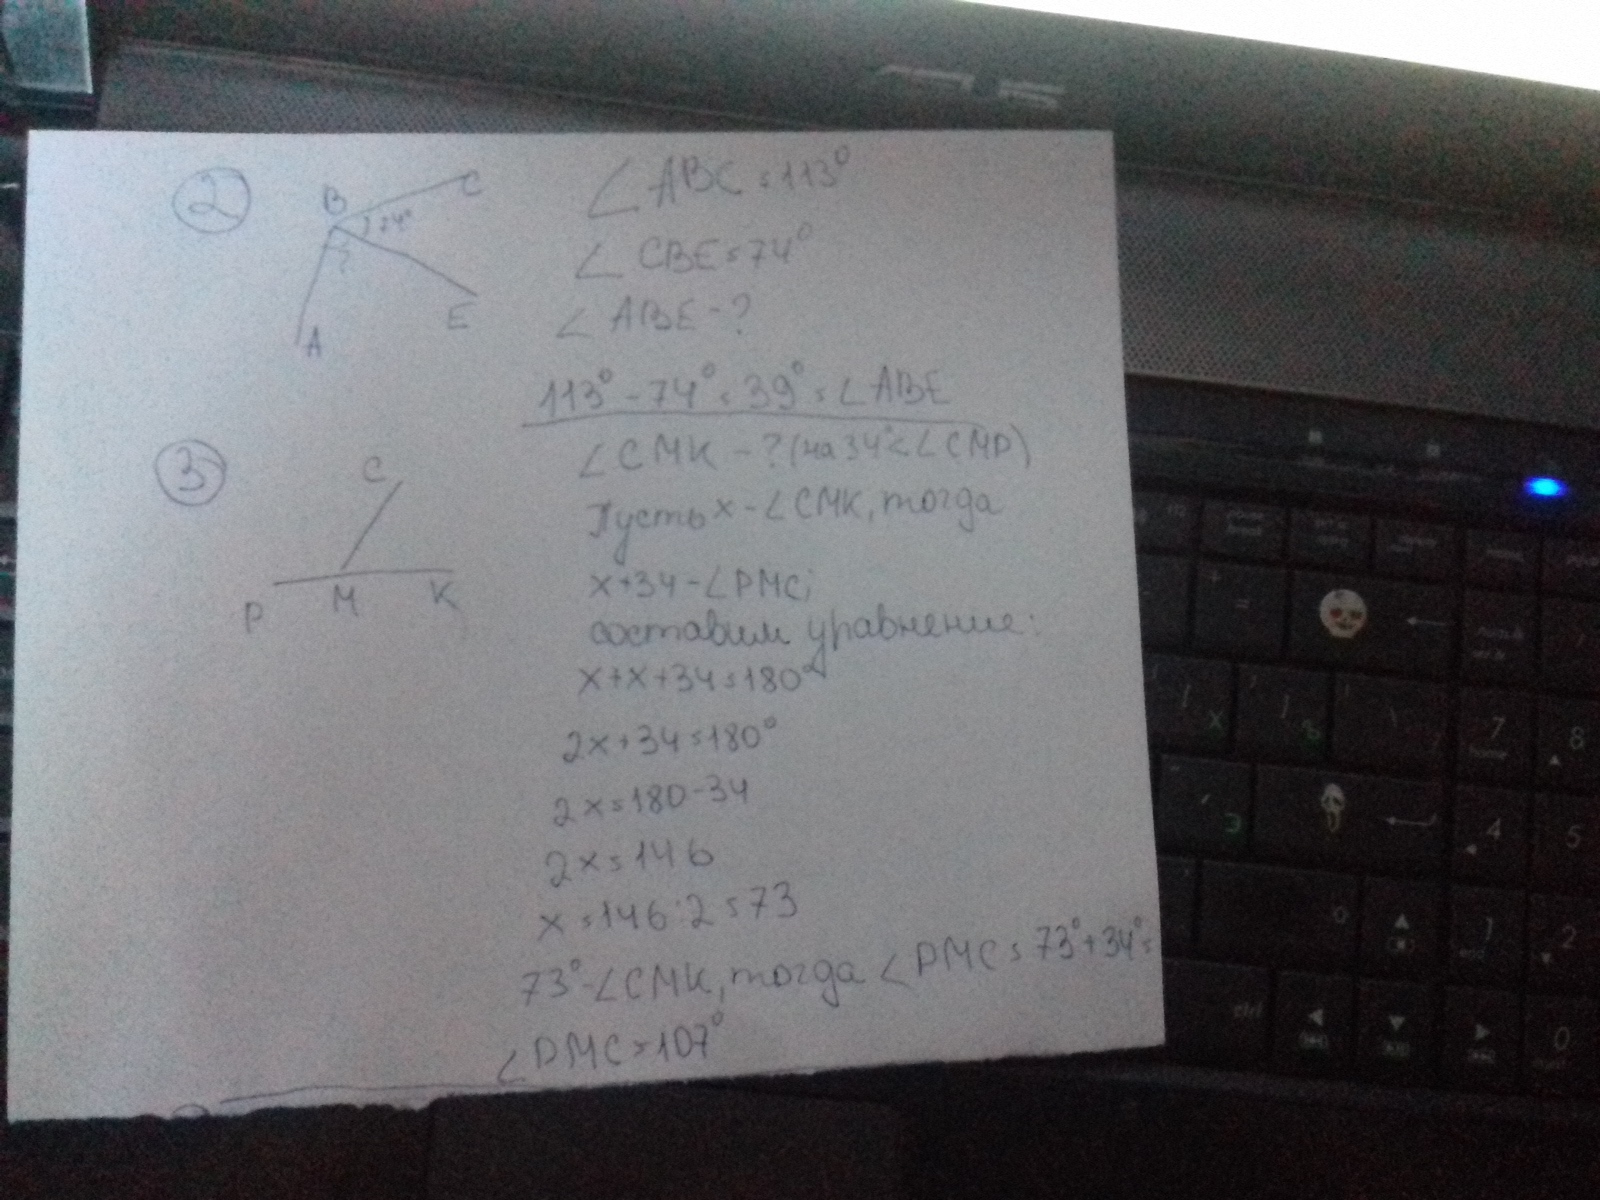 2
B
C
74°
?
A
E
∠ABC = 113°
∠CBE = 74°
∠ABE - ?
113° - 74° = 39° = ∠ABE
3
C
P M K
∠CMK - ? (на 34° < ∠CMP)
Пусть x - ∠CMK, тогда
x+34 - ∠PMC;
составим уравнение:
x+x+34=180°
2x+34=180°
2x=180-34
2x=146
x=146:2=73
73° - ∠CMK, тогда ∠PMC = 73°+34° =
∠PMC = 107°